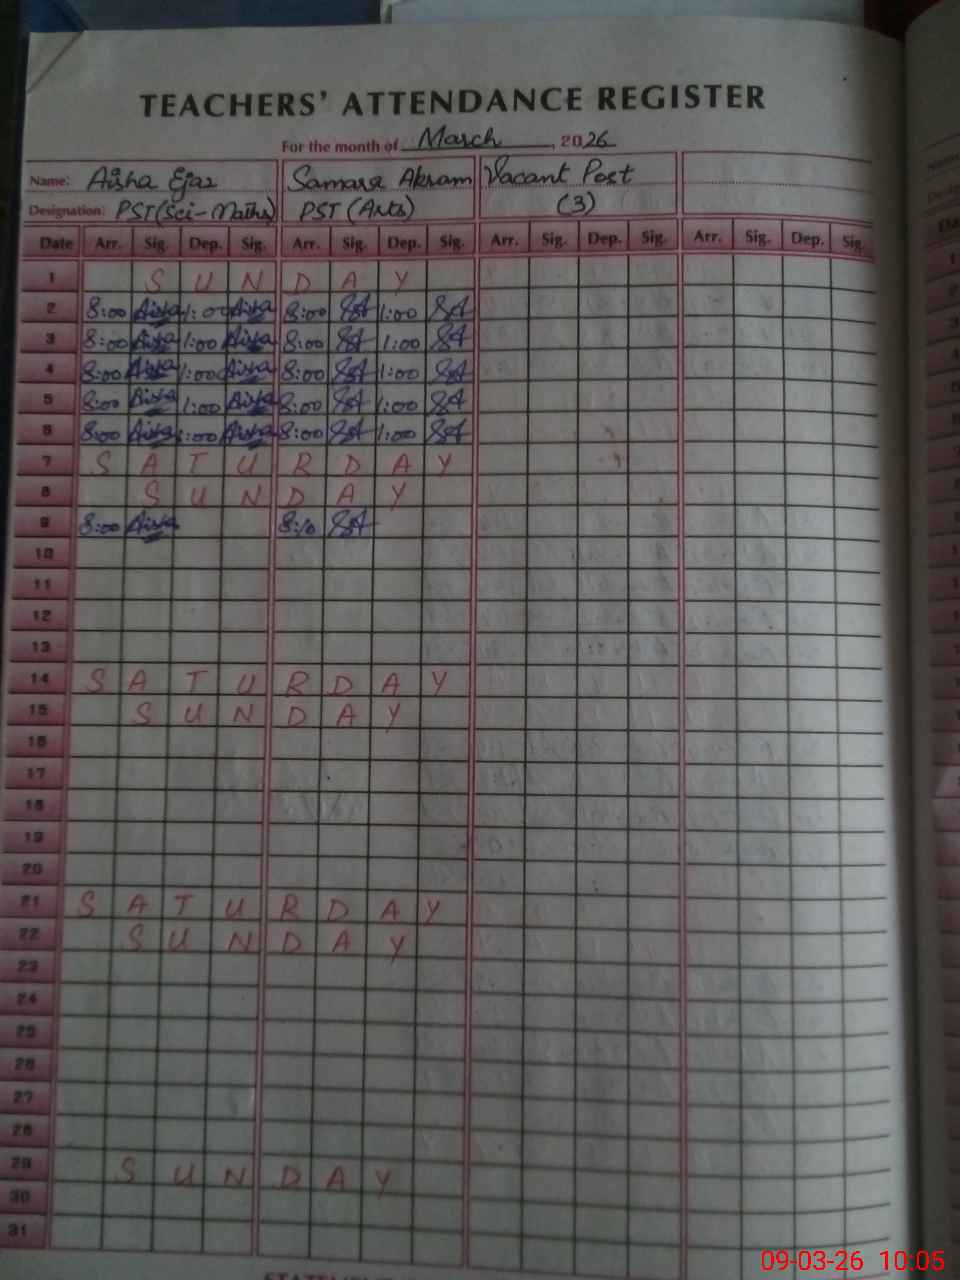 TEACHERS' ATTENDANCE REGISTER
For the month of March, 2026
Name: Aisha Ejaz Samara Akram Vacant Post
Designation: PST(Sci-Maths) PST (Arts) (3)
Date Arr. Sig. Dep. Sig. Arr. Sig. Dep. Sig. Arr. Sig. Dep. Sig. Arr. Sig. Dep. Sig.
1 S U N D A Y
2 8:00 Aisha 1:00 Aisha 8:00 SA 1:00 SA
3 8:00 Aisha 1:00 Aisha 8:00 SA 1:00 SA
4 8:00 Aisha 1:00 Aisha 8:00 SA 1:00 SA
5 8:00 Aisha 1:00 Aisha 8:00 SA 1:00 SA
6 8:00 Aisha 1:00 Aisha 8:00 SA 1:00 SA
7 S A T U R D A Y
8 S U N D A Y
9 8:00 Aisha 8:10 SA
10
11
12
13
14 S A T U R D A Y
15 S U N D A Y
16
17
18
19
20
21 S A T U R D A Y
22 S U N D A Y
23
24
25
26
27
28
29 S U N D A Y
30
31
09-03-26 10:05